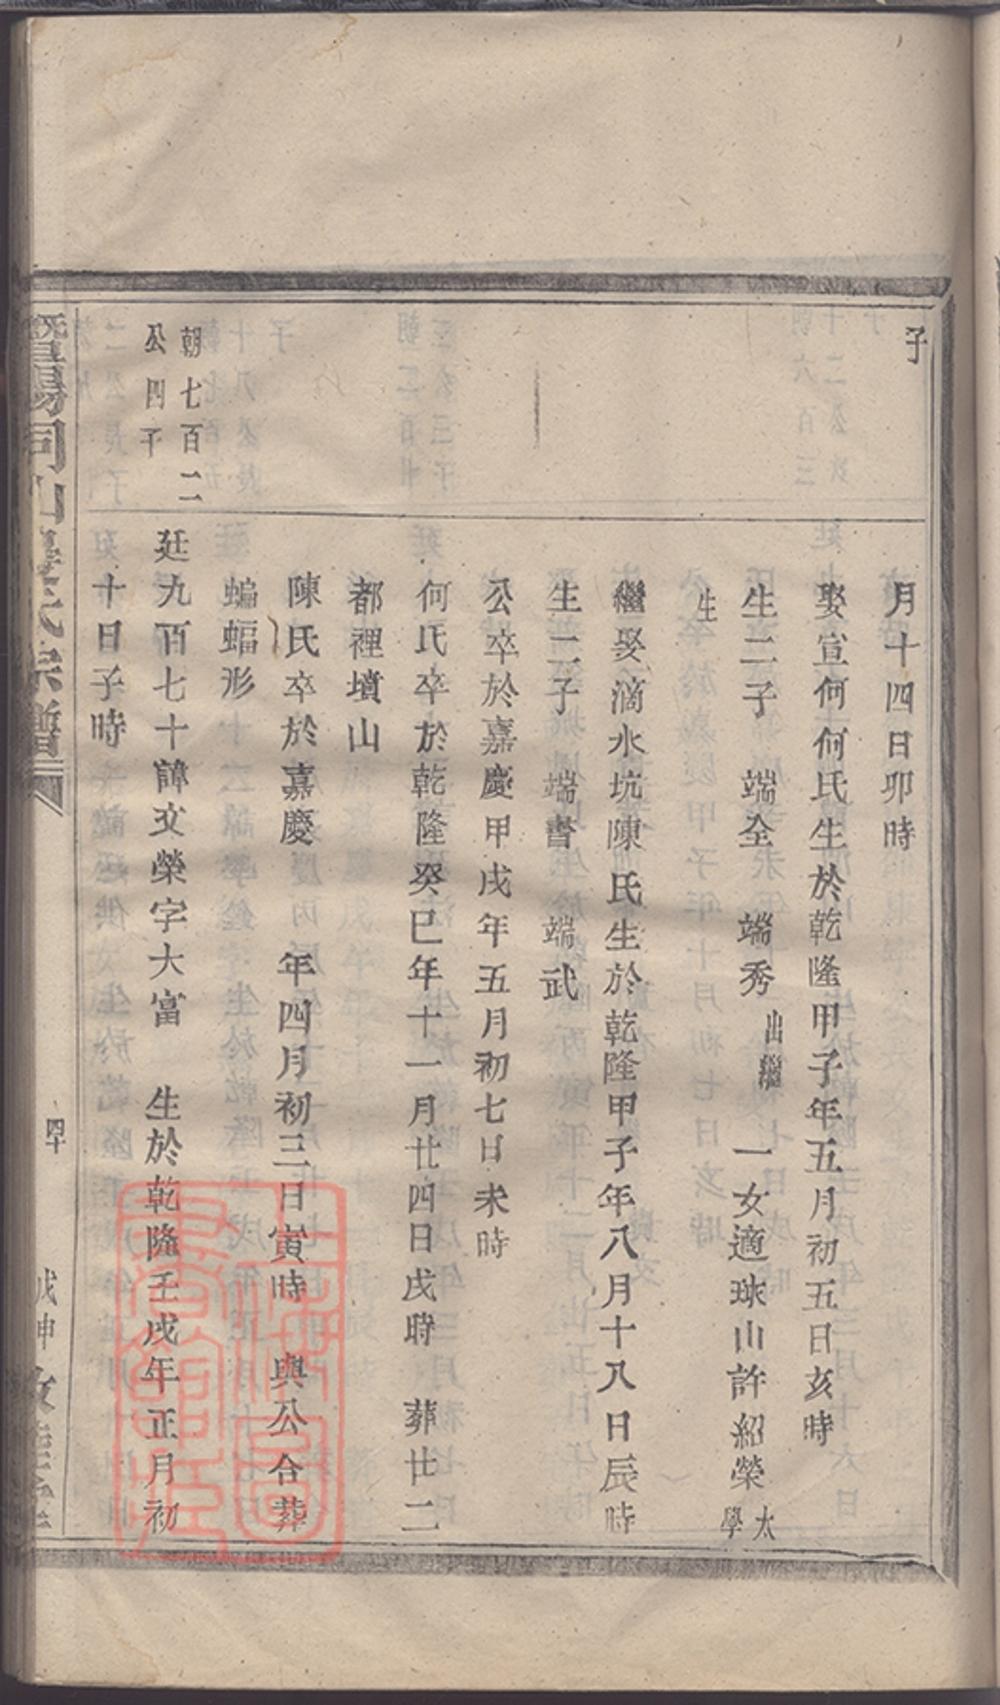 子
月十四日卯時
娶宣何何氏生於乾隆甲子年五月初五日亥時
生二子 端全 端秀出繼 一女適球山許紹榮太學
生
繼娶滴水坑陳氏生於乾隆甲子年八月十八日辰時
生二子 端書 端武
公卒於嘉慶甲戌年五月初七日未時
何氏卒於乾隆癸巳年十一月廿四日戌時 葬廿二
都裡墳山
陳氏卒於嘉慶 年四月初三日寅時 與公合葬
蝙蝠形
朝七百二
公四子
廷九百七十諱文榮字大富 生於乾隆壬戌年正月初
十日子時
暨陽同山 氏宗譜
四十
戊申